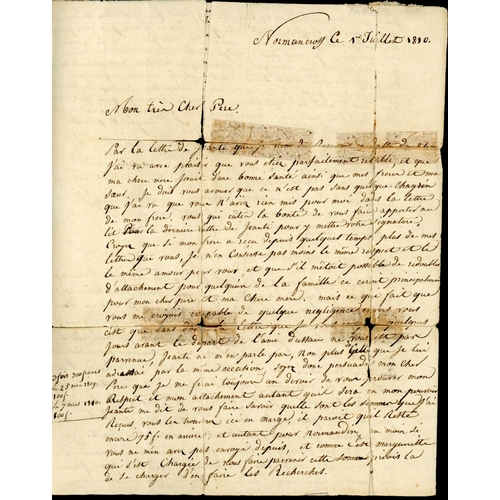 Normancross Ce 1er Juillet 1810.
Mon très Cher Père.
Par la lettre de
j'ai vu avec plaisir que vous étiez parfaitement rétabli, et que
ma chere mere Jouit d'une bonne santé ainsi que mes freres et ma
sœur. Je dois vous avouer que ce n'est pas sans quelque Chagrin
que j'ai vu que vous n'avez rien mis pour moi dans la lettre
de mon frere, vous qui eutes la bonté de vous faire apporter au
lit la derniere lettre de Jeanti pour y mettre votre signature,
Croyez que si mon frere a reçu depuis quelques temps plus de mes
lettres que vous, Je n'en Conserve pas moins le même respect et le
le même amour pour vous, et que s'il m'étoit possible de redoubler
d'attachement pour quelqu'un de la famille ce seroit principalement
pour mon cher pere et ma Chere mere. mais ce que fait que
vous me croyez coupable de quelque négligence envers vous
c'est que sans la lettre que Je quelques
Jours avant le départ de l'ame ne vous est pas
parvenue, Jeanti ne m'en parle pas, Non plus Celle que Je lui
adressai par la même occasion, soyez donc persuadé mon Cher
Pere que Je me ferai toujours un devoir de vous prouver mon
Respect et mon attachement autant qu'il sera en mon pouvoir
Jeanti me dit de vous faire savoir quelle sont les sommes que J'ai
Reçues, vous les trouverez ici en marge, il paroit qu'il Reste
encore 75f en arriere, et autant pour Normandin, au moins si
vous ne m'en avez pas envoyé depuis, et comme c'est marguerille
qui s'est Chargée de nous faire parvenir cette somme
de se charger d'en faire les Recherches.
2 fois 300 francs
le 25 mai 1807
100f.
le 7 mars 1810
100f.